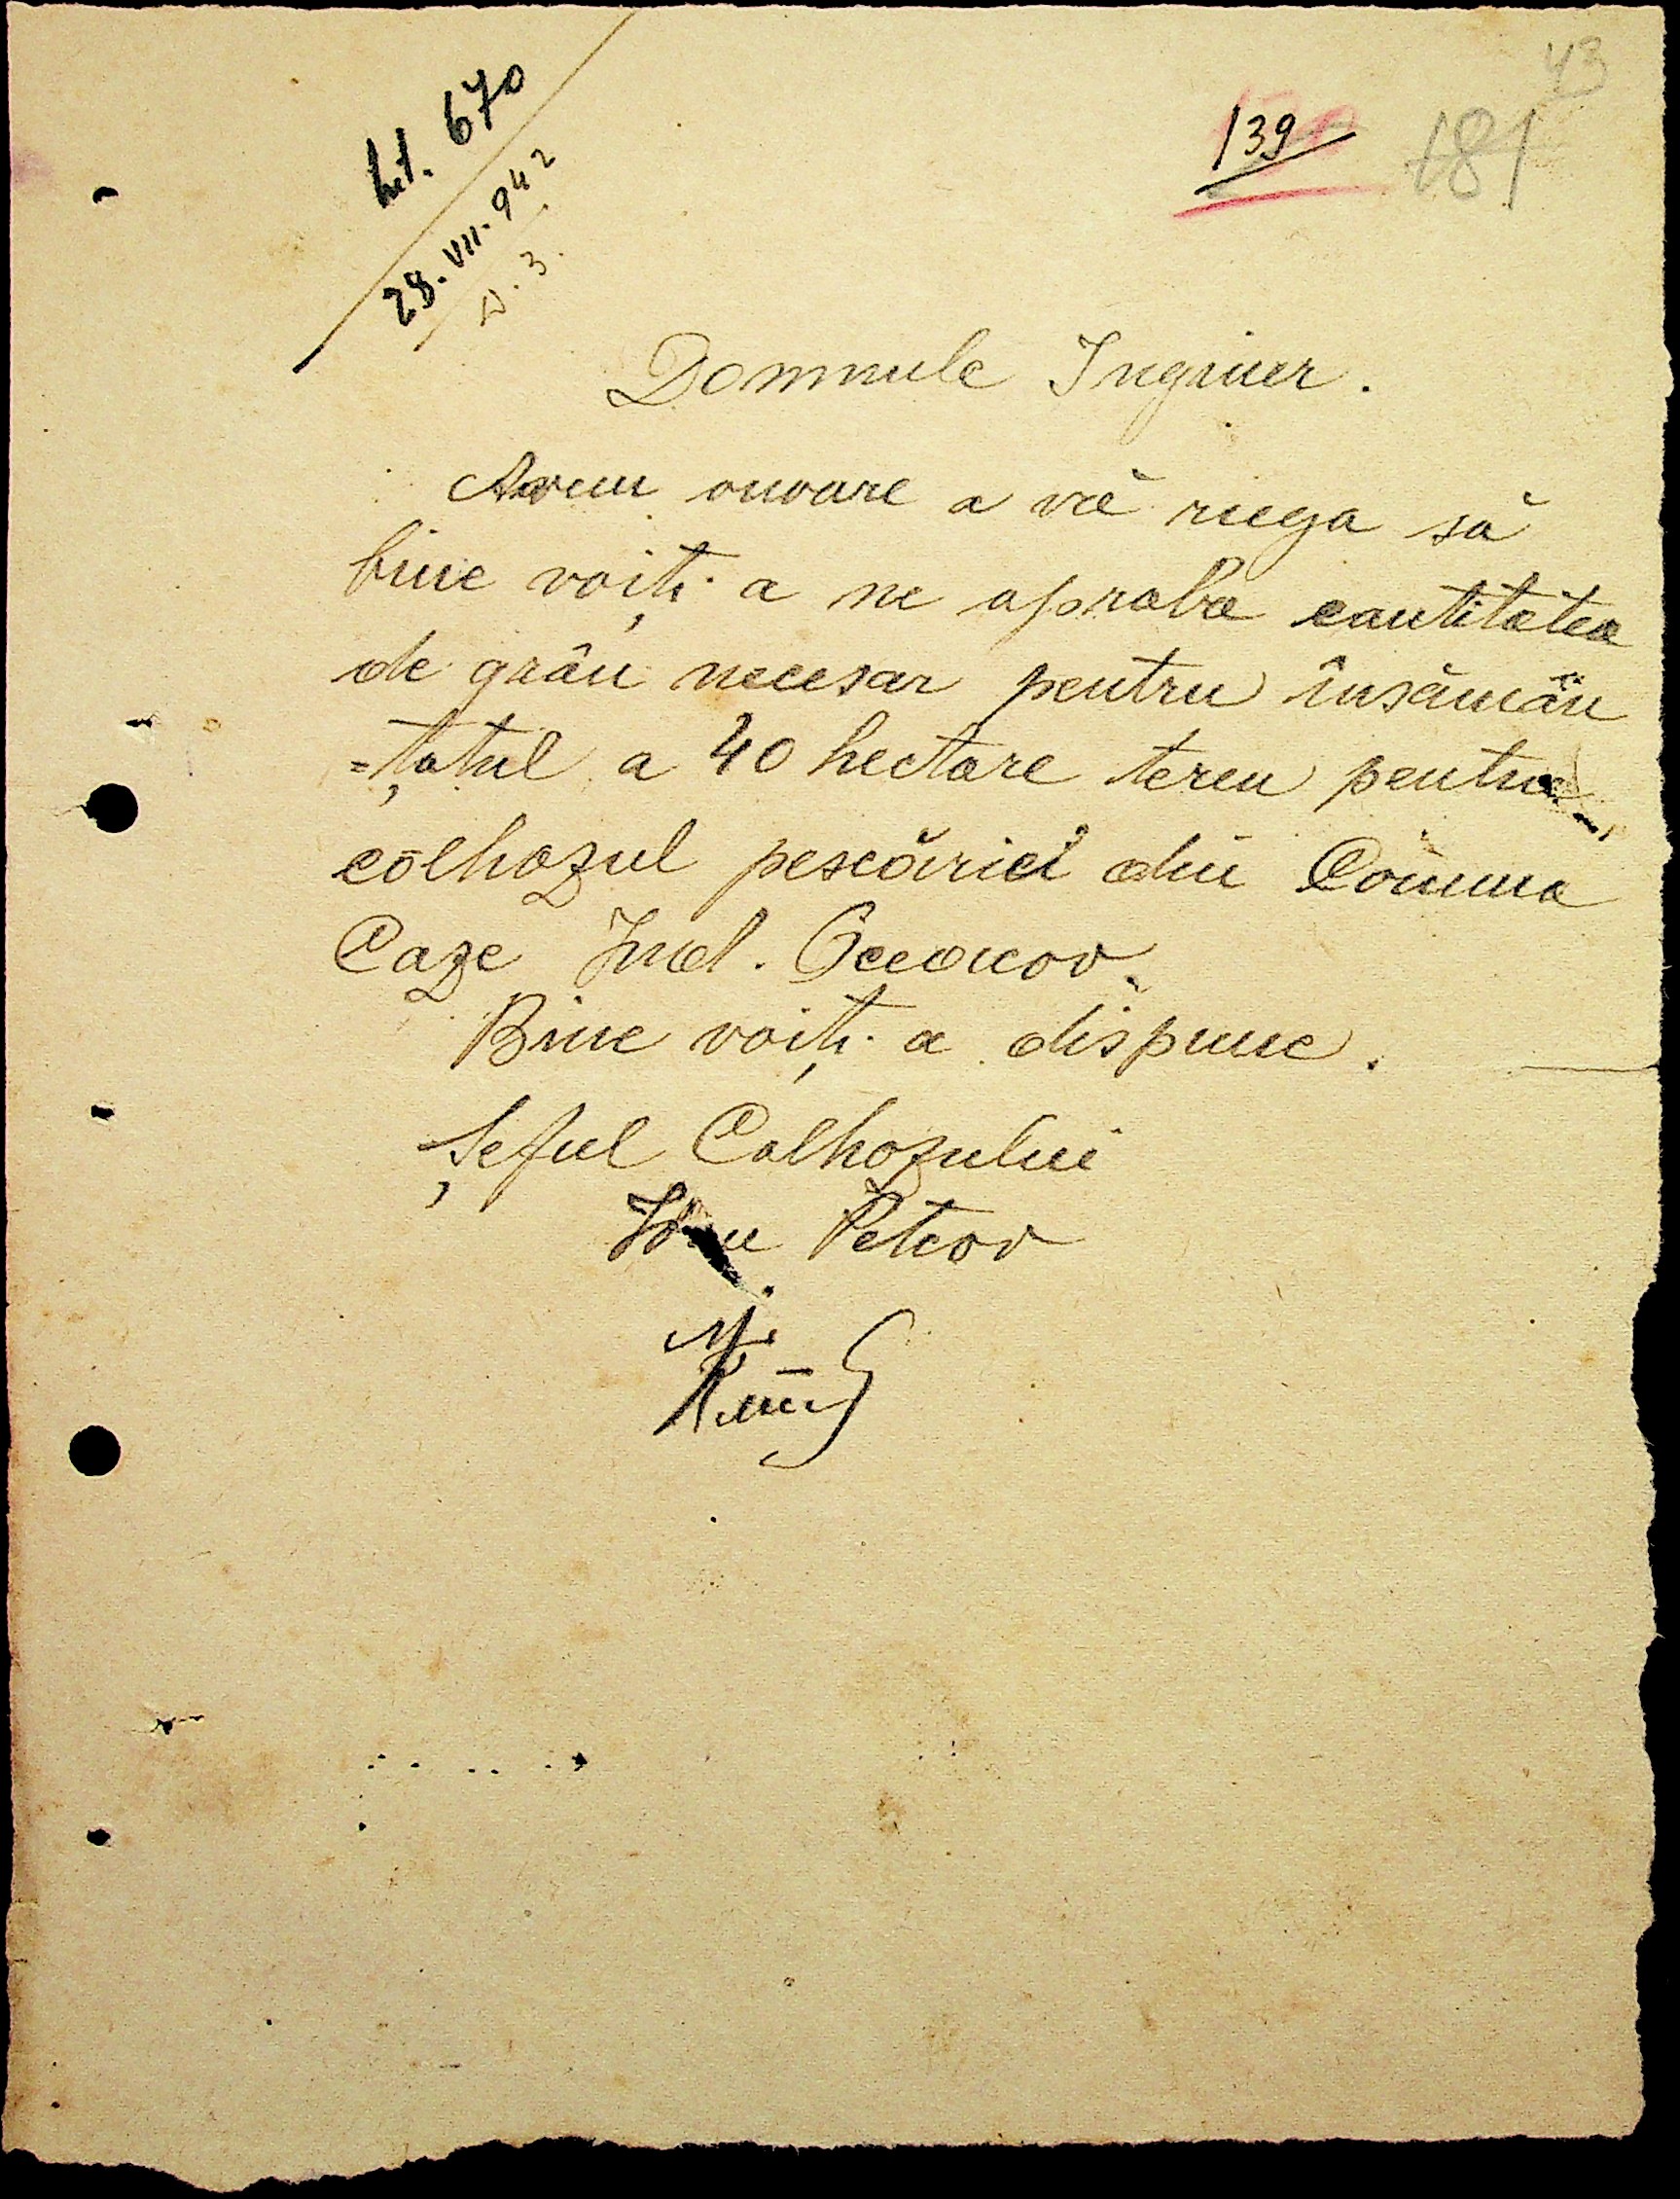 43
181
139
Int. 670
28.VII.942
D. 3.
Domnule Inginer.
Avem onoare a vă ruga să
bine voiți a ne aproba cantitatea
de grâu necesar pentru însămân
=țatul a 40 hectare teren pentru
colhozul pescăriei din Comuna
Caze Jud. Oceacov.
Bine voiți a dispune.
Șeful Colhozului
Petcov